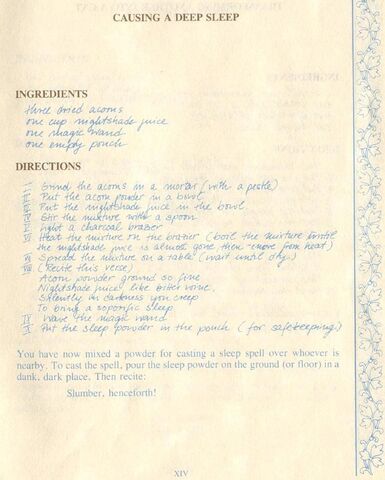 CAUSING A DEEP SLEEP
INGREDIENTS
three dried acorns
one cup nightshade juice
one magic wand
one empty pouch
DIRECTIONS
I Grind the acorns in a mortar (with a pestle)
II Put the acorn powder in a bowl
III Put the nightshade juice in the bowl
IV Stir the mixture with a spoon
V Light a charcoal brazier
VI Heat the mixture on the brazier (boil the mixture until
the nightshade juice is almost gone then remove from heat)
VII Spread the mixture on a table (wait until dry)
VIII (Recite this verse)
Acorn powder ground so fine
Nightshade juice, like bitter wine,
Silently in darkness you creep
To bring a soporific sleep
IX Wave the magic wand
X Put the sleep powder in the pouch (for safekeeping)
You have now mixed a powder for casting a sleep spell over whoever is
nearby. To cast the spell, pour the sleep powder on the ground (or floor) in a
dank, dark place. Then recite:
Slumber, henceforth!
XIV